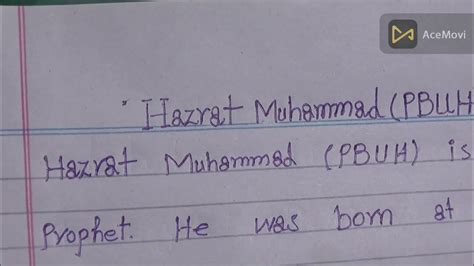 AceMovi
Hazrat Muhammad (PBUH
Hazrat Muhammad (PBUH) is
Prophet. He was born at